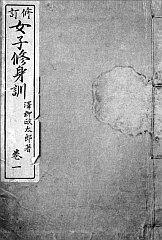 修訂
女子修身訓
澤柳政太郎著
卷一